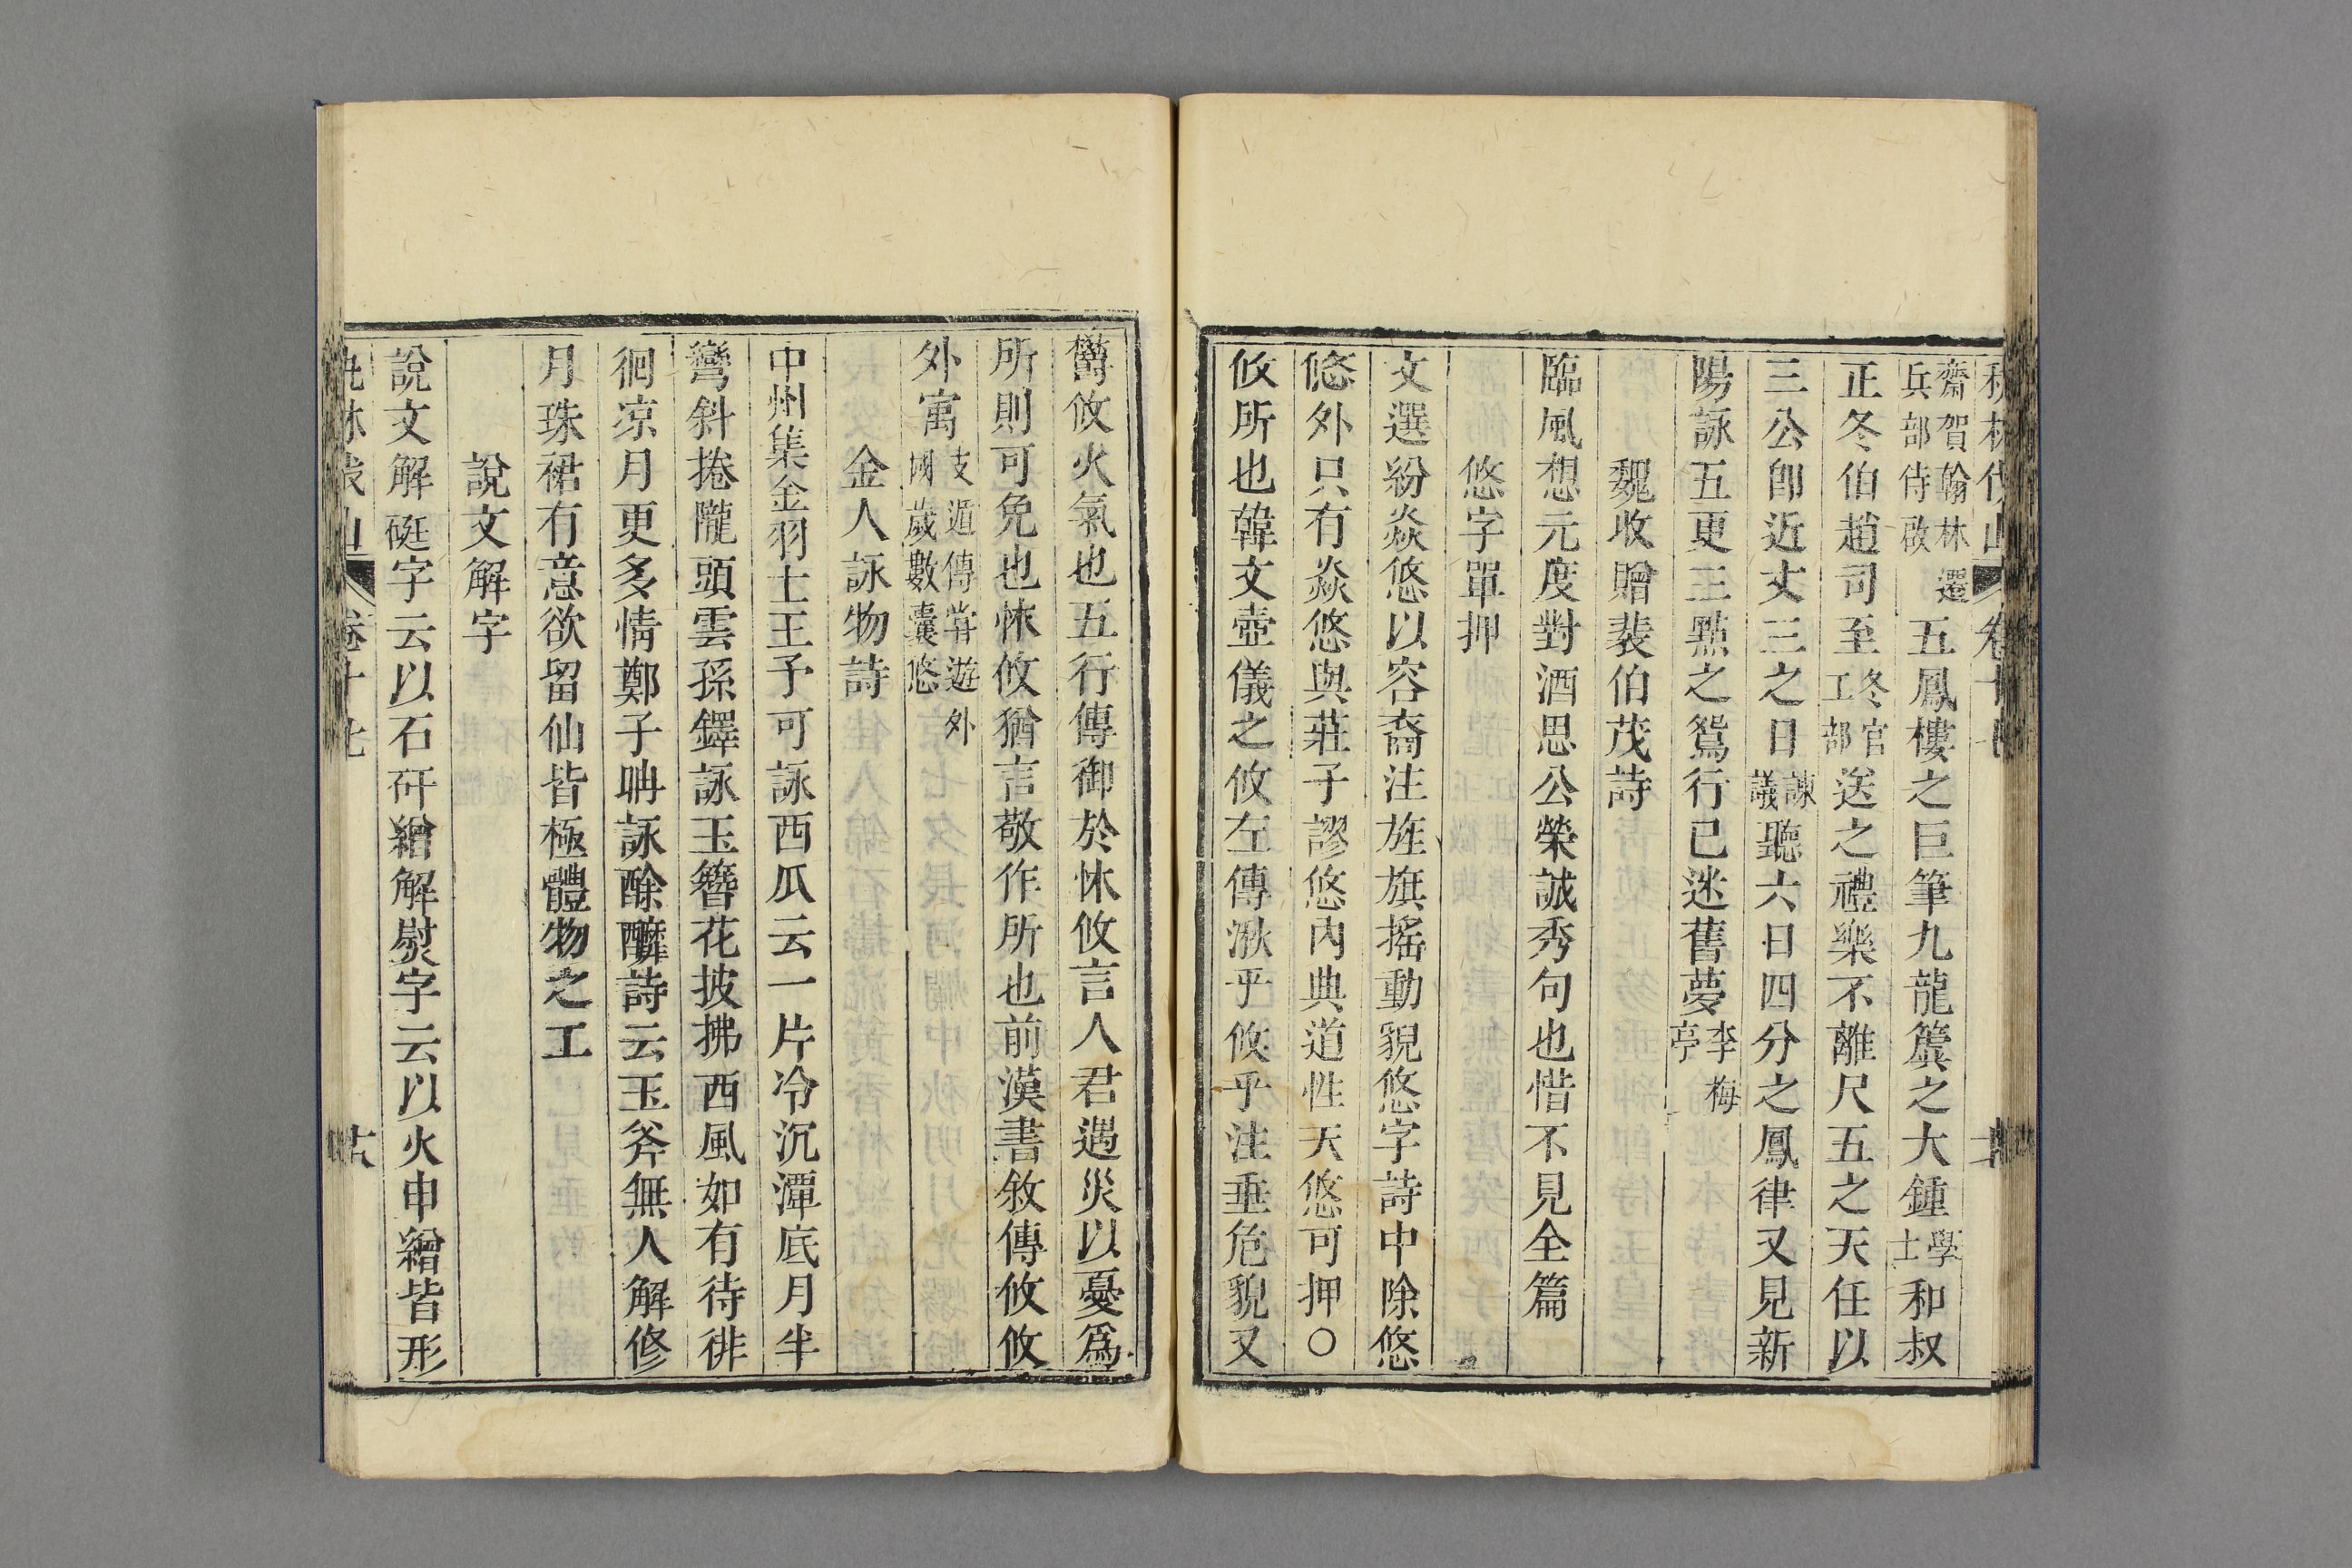 齋賀翰林還
兵部侍啟
五鳳樓之巨筆九龍簴之大鍾學士和叔
正冬伯趙司至冬官工部送之禮樂不離尺五之天任以
三公即近丈三之日諫議聽六日四分之鳳律又見新
陽詠五更三點之鴛行已迷舊夢李梅亭
魏收贈裴伯茂詩
臨風想元度對酒思公榮誠秀句也惜不見全篇
悠字單押
文選紛焱悠以容裔注旌旗搖動貌悠字詩中除悠
悠外只有焱悠與莊子謬悠內典道性天悠可押○
攸所也韓文壺儀之攸左傳湫乎攸乎注垂危貌又
欝攸火氣也五行傳御於怵攸言人君遇災以憂爲
所則可免也怵攸猶言敬作所也前漢書敘傳攸攸
外寓支遁傳甞遊外國歲數囊悠
金人詠物詩
中州集金羽士王予可詠西瓜云一片冷沉潭底月半
彎斜捲隴頭雲孫鐸詠玉簪花披拂西風如有待徘
徊凉月更多情鄭子聃詠酴醾詩云玉斧無人解修
月珠裙有意欲留仙皆極體物之工
說文解字
說文解硟字云以石硏繒解㷉字云以火申繒皆形
卷十七
十六